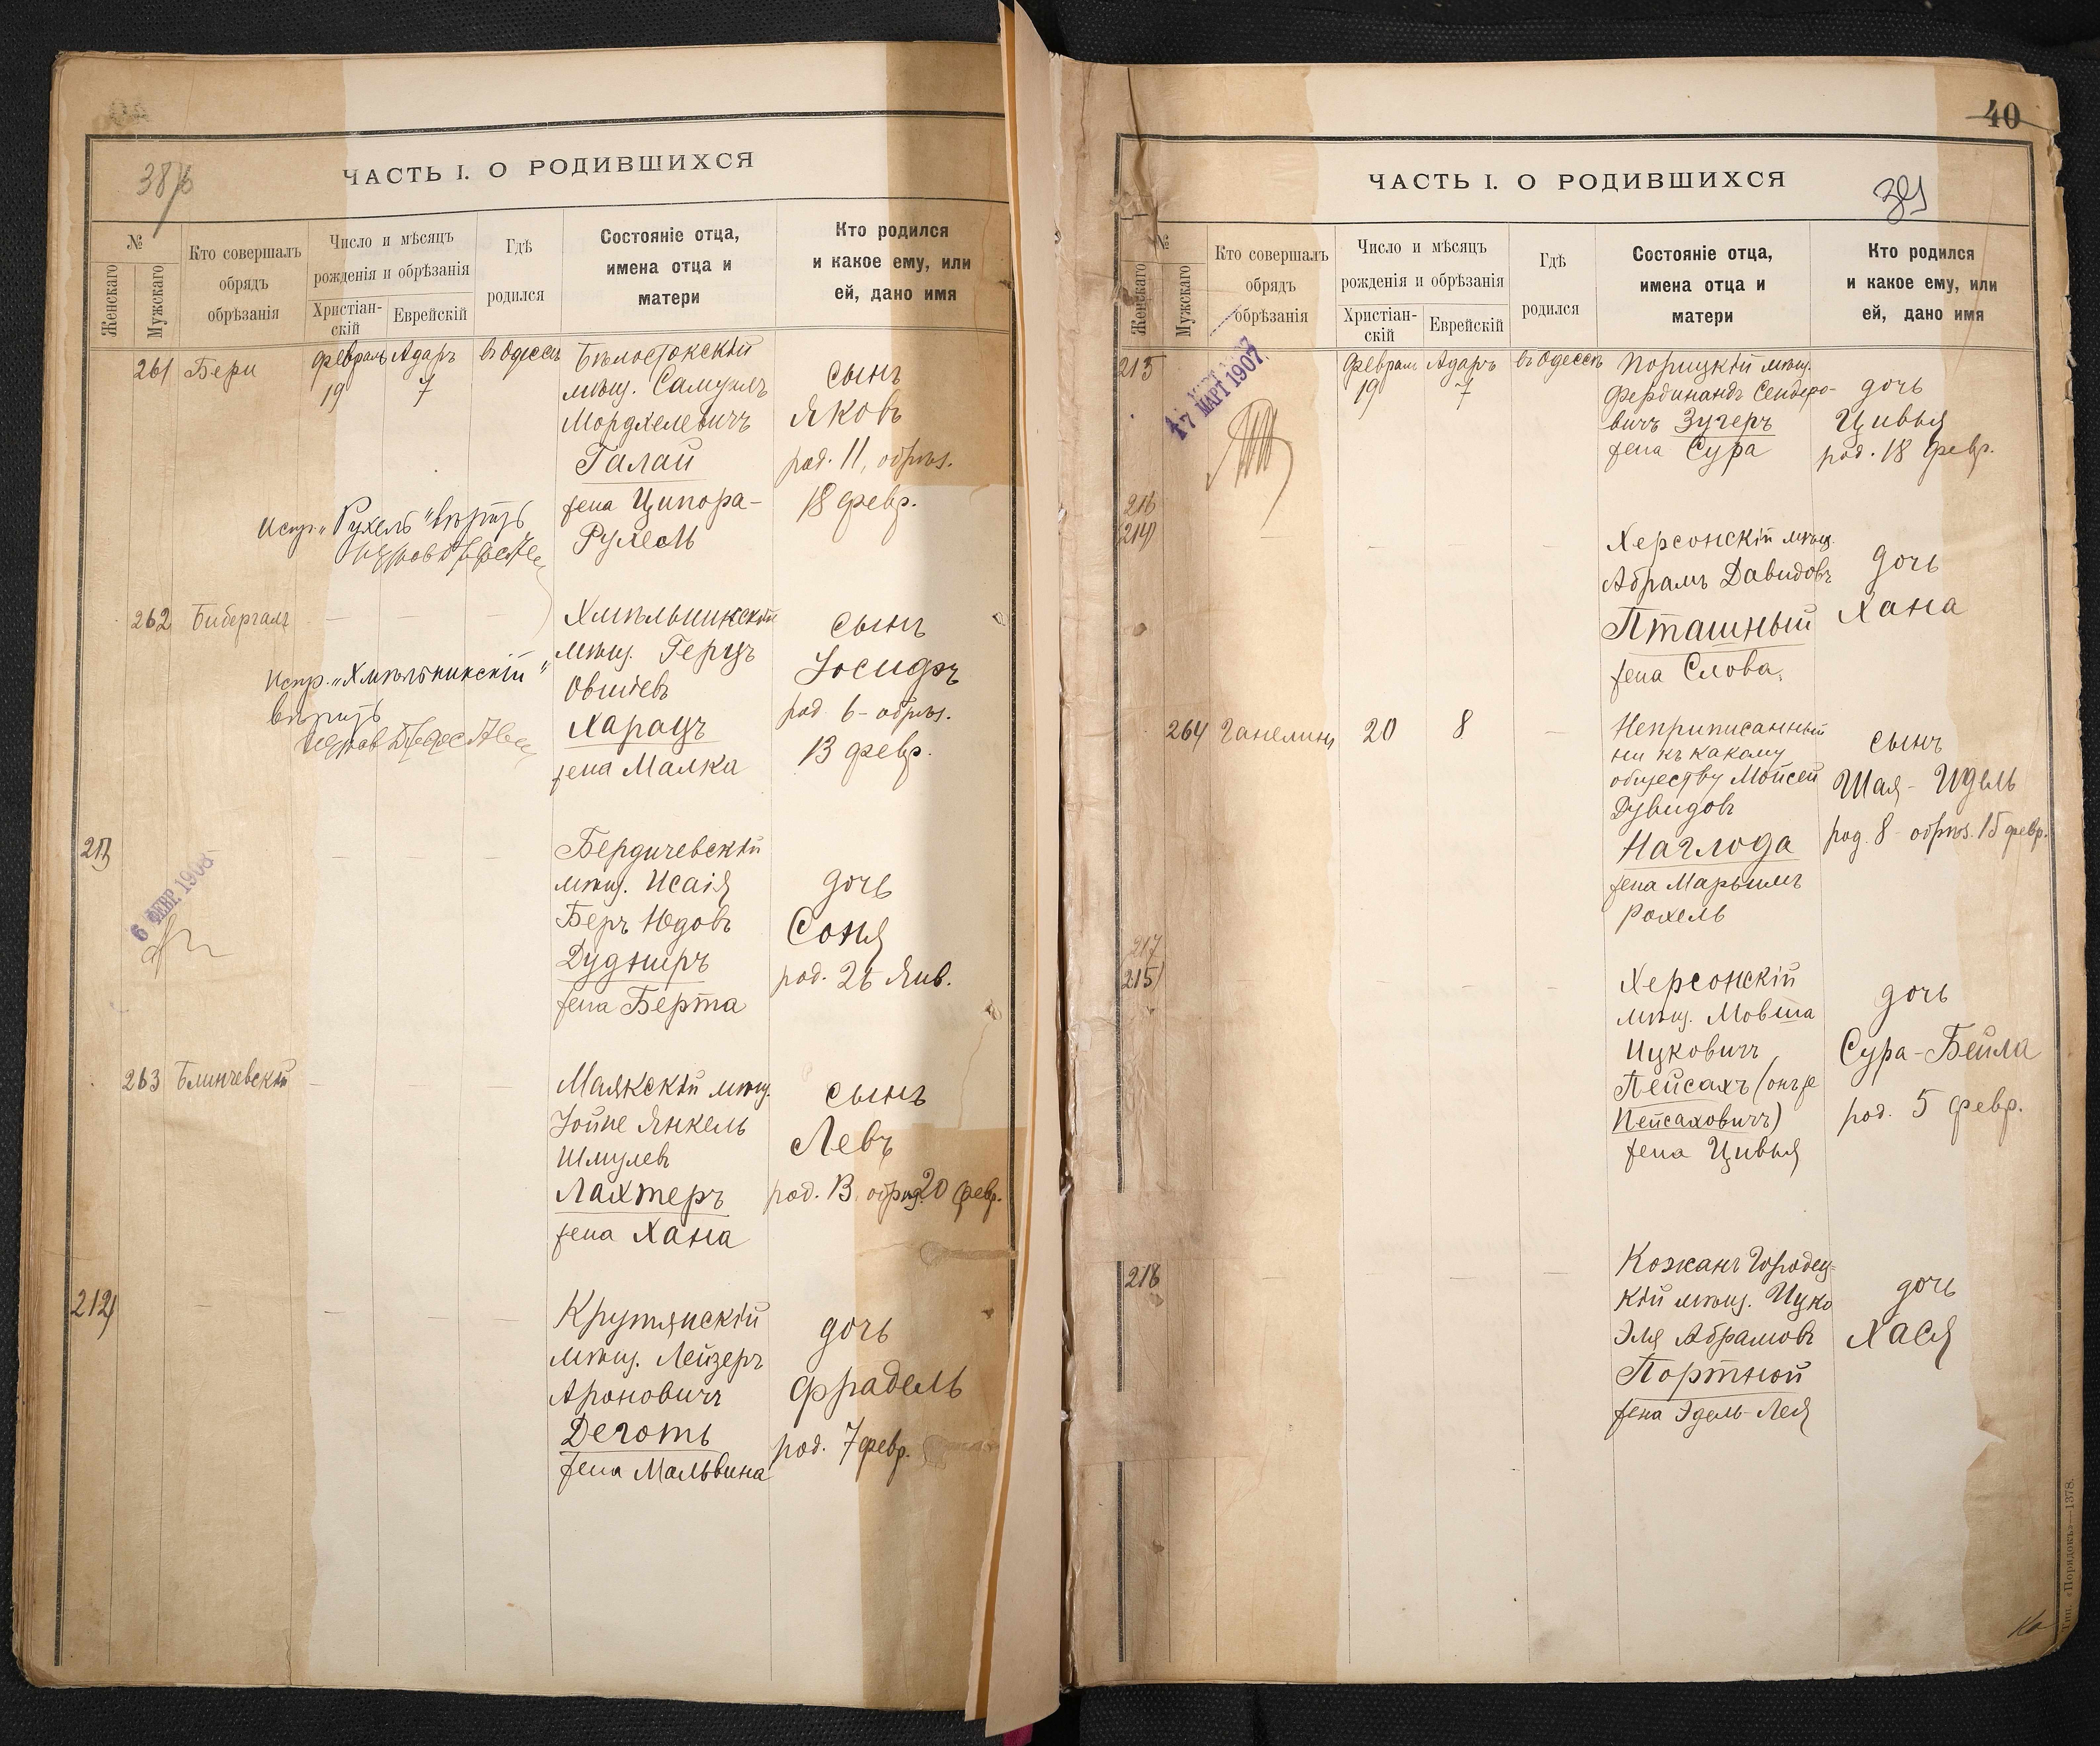 38/б
ЧАСТЬ I. О РОДИВШИХСЯ
№
Женскаго
Мужскаго
Кто совершалъ
обрядъ
обрѣзанія
Число и мѣсяцъ
рожденія и обрѣзанія
Христіан-
скій
Еврейскій
Гдѣ
родился
Состояніе отца,
имена отца и
матери
Кто родился
и какое ему, или
ей, дано имя
261 Бери
Февраль Адаръ въ Одессѣ
19 7
Бѣлостокскій
мѣщ. Самуилъ
Мордхелевичъ
Галай
жена Ципора-
Рухель
сынъ
Яковъ
род. 11, обрѣз.
18 февр.
Испр. „Рухель“ вѣрить
262 Бибергалъ
Хмѣльникскій
мѣщ. Герцъ
Овшіевъ
Харацъ
жена Малка
сынъ
Іосифъ
род. 6 - обрѣз.
13 февр.
Испр. „Хмѣльникскій“
вѣрить
211
6 ФЕВР. 1908
Бердичевскій
мѣщ. Исаія
Беръ Юдовъ
Дудниръ
жена Берта
дочь
Соня
род. 26 Янв.
263 Блинчевскій
Маякскій мѣщ.
Іойне Янкель
Шмулевъ
Лахтеръ
жена Хана
сынъ
Левъ
род. 13, обрѣз. 20 февр.
212
Крутянскій
мѣщ. Лейзеръ
Ароновичъ
Деготь
жена Мальвина
дочь
Фрадель
род. 7 февр.
40
39
ЧАСТЬ I. О РОДИВШИХСЯ
№
Женскаго
Мужскаго
Кто совершалъ
обрядъ
обрѣзанія
Число и мѣсяцъ
рожденія и обрѣзанія
Христіан-
скій
Еврейскій
Гдѣ
родился
Состояніе отца,
имена отца и
матери
Кто родился
и какое ему, или
ей, дано имя
213
17 МАРТ 1907
Февраль Адаръ въ Одессѣ
19 7
Порицкій мѣщ.
Фердинандъ Сендеро-
вичъ Зугеръ
жена Сура
дочь
Цивья
род. 18 февр.
216
214
Херсонскій мѣщ.
Абрамъ Давидовъ
Пташный
жена Слова.
дочь
Хана
264 Ганелинъ 20 8
Неприписанный
ни къ какому
обществу Мойсей
Дувидовъ
Наглода
жена Марьимъ
Рохель
сынъ
Шая-Идель
род. 8 - обрѣз. 15 февр.
217
215
Херсонскій
мѣщ. Мовша
Ицковичъ
Пейсахъ (онъ же
Пейсаховичъ)
жена Цивья
дочь
Сура-Бейла
род. 5 февр.
218
Кожанъ Городец-
кій мѣщ. Ицко
Эля Абрамовъ
Портной
жена Эдель-Лея
дочь
Хася
Тип. «Порядокъ»—1378.